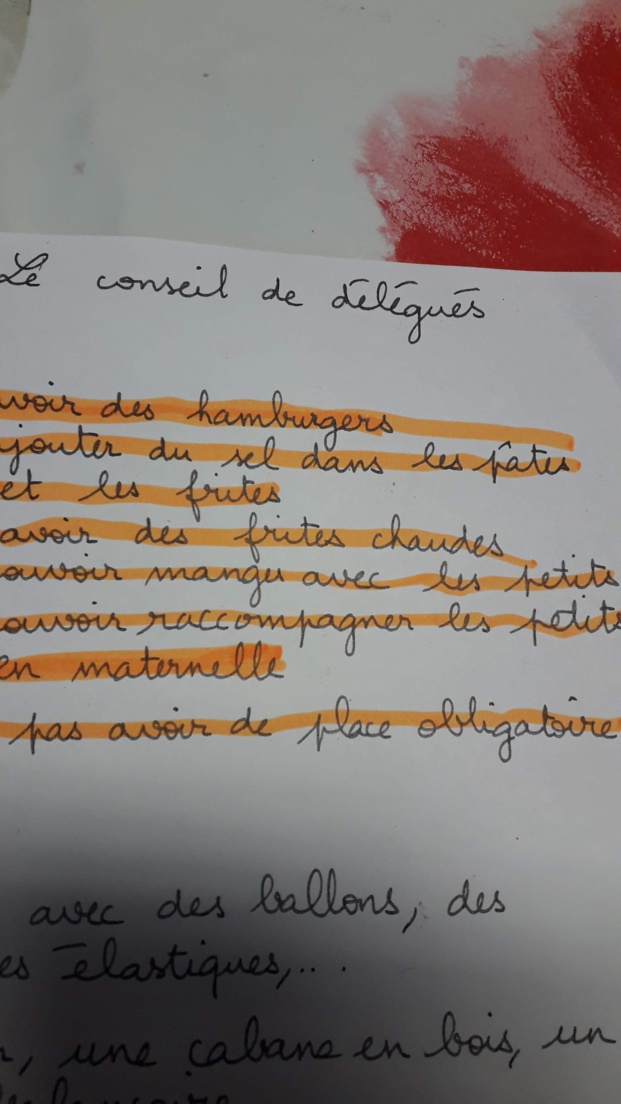 Le conseil de délégués
avoir des hamburgers
ajouter du sel dans les pâtes
et les frites
avoir des frites chaudes
pouvoir manger avec les petits
pouvoir raccompagner les petits
en maternelle
pas avoir de place obligatoire
avec des ballons, des
es élastiques,...
, une cabane en bois, un